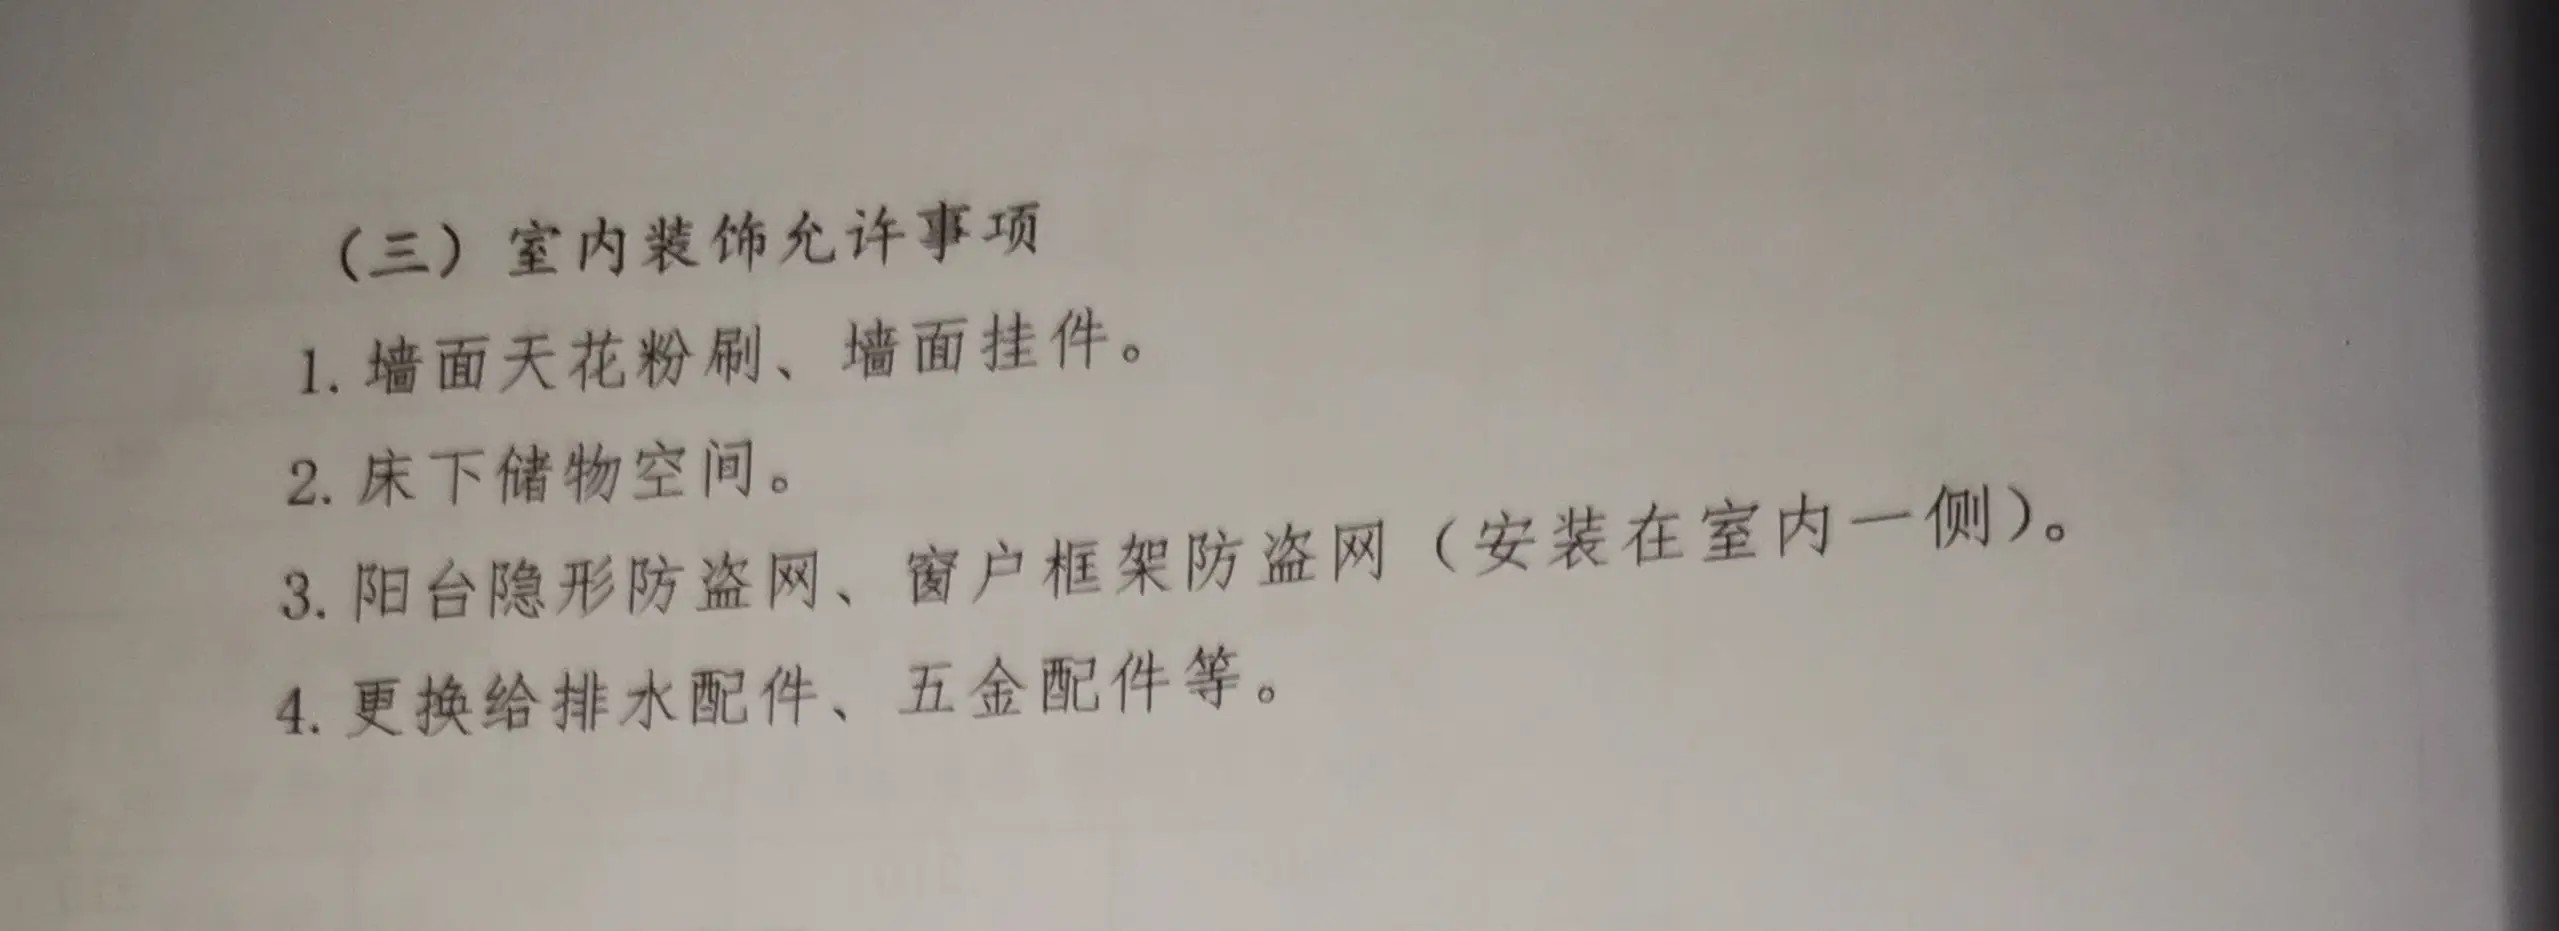 （三）室内装饰允许事项
1. 墙面天花粉刷、墙面挂件。
2. 床下储物空间。
3. 阳台隐形防盗网、窗户框架防盗网（安装在室内一侧）。
4. 更换给排水配件、五金配件等。